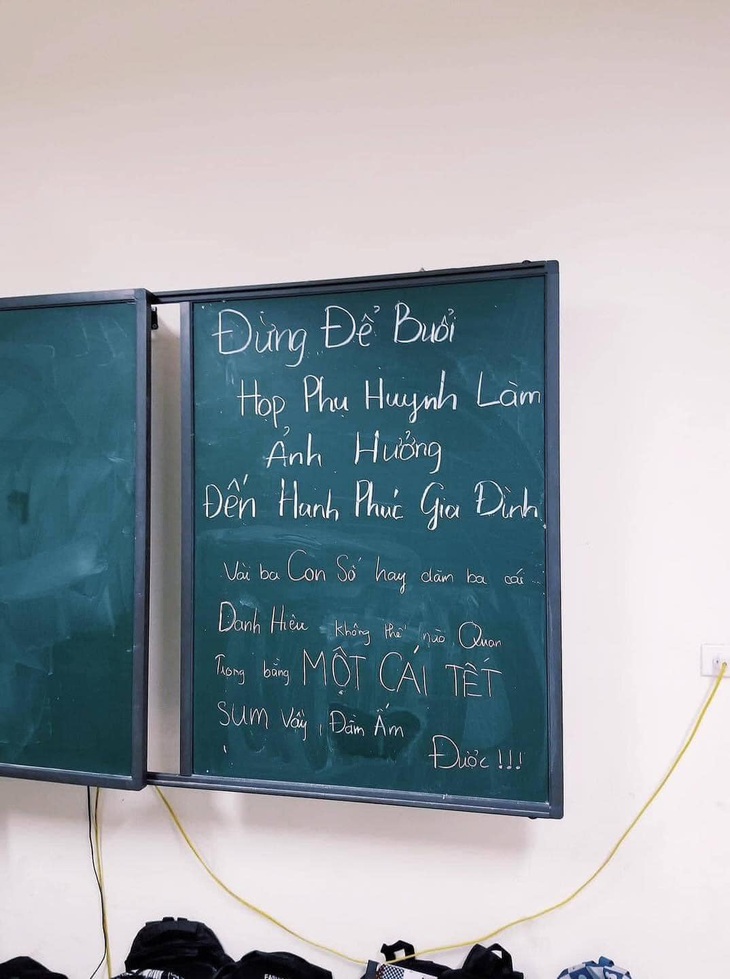 Đừng Để Buổi
Họp Phụ Huynh Làm
Ảnh Hưởng
Đến Hạnh Phúc Gia Đình
Vài ba Con Số hay dăm ba cái
Danh Hiệu không thể nào Quan
Trọng bằng MỘT CÁI TẾT
SUM Vầy, Đầm Ấm
Được !!!